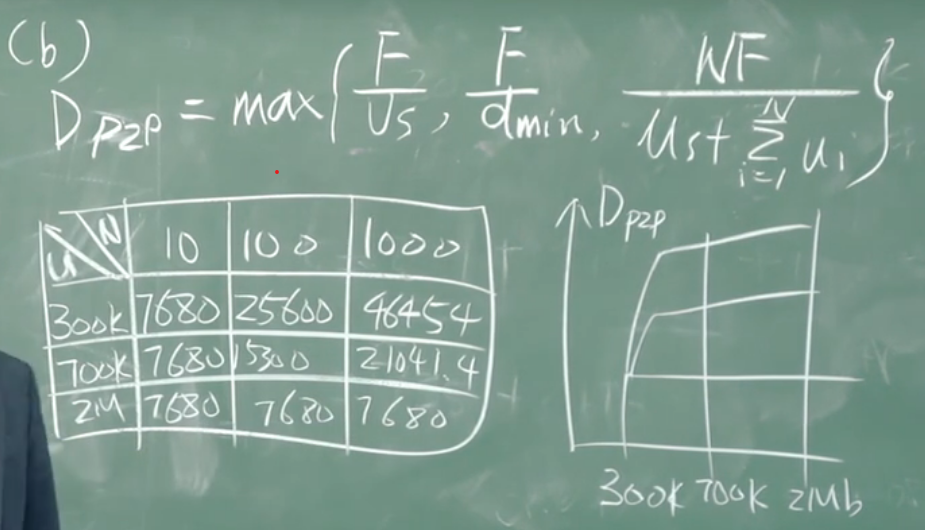 (b)
D P2P = max { F/Us, F/dmin, NF/(Us+ N Σ i=1 ui) }
U N 10 100 1000
300k 7680 25600 46454
700k 7680 15300 21041.4
2M 7680 7680 7680
D P2P
300k 700k 2Mb